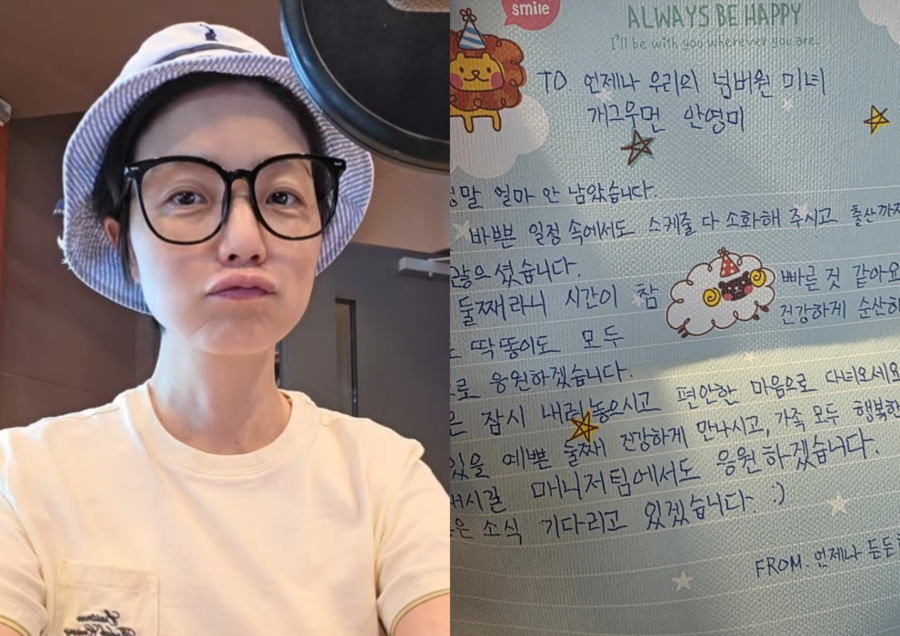 smile
ALWAYS BE HAPPY
I'll be with you wherever you are.
TO 언제나 우리의 넘버원 미녀
개그우먼 안영미
정말 얼마 안 남았습니다.
바쁜 일정 속에서도 스케줄 다 소화해 주시고 출산까지
많으셨습니다.
둘째라니 시간이 참 빠른 것 같아요
딱똥이도 모두 건강하게 순산하
로 응원하겠습니다.
은 잠시 내려놓으시고 편안한 마음으로 다녀오세요
있을 예쁜 둘째 건강하게 만나시고, 가족 모두 행복한
매니저팀에서도 응원하겠습니다.
은 소식 기다리고 있겠습니다 :)
FROM. 언제나 든든